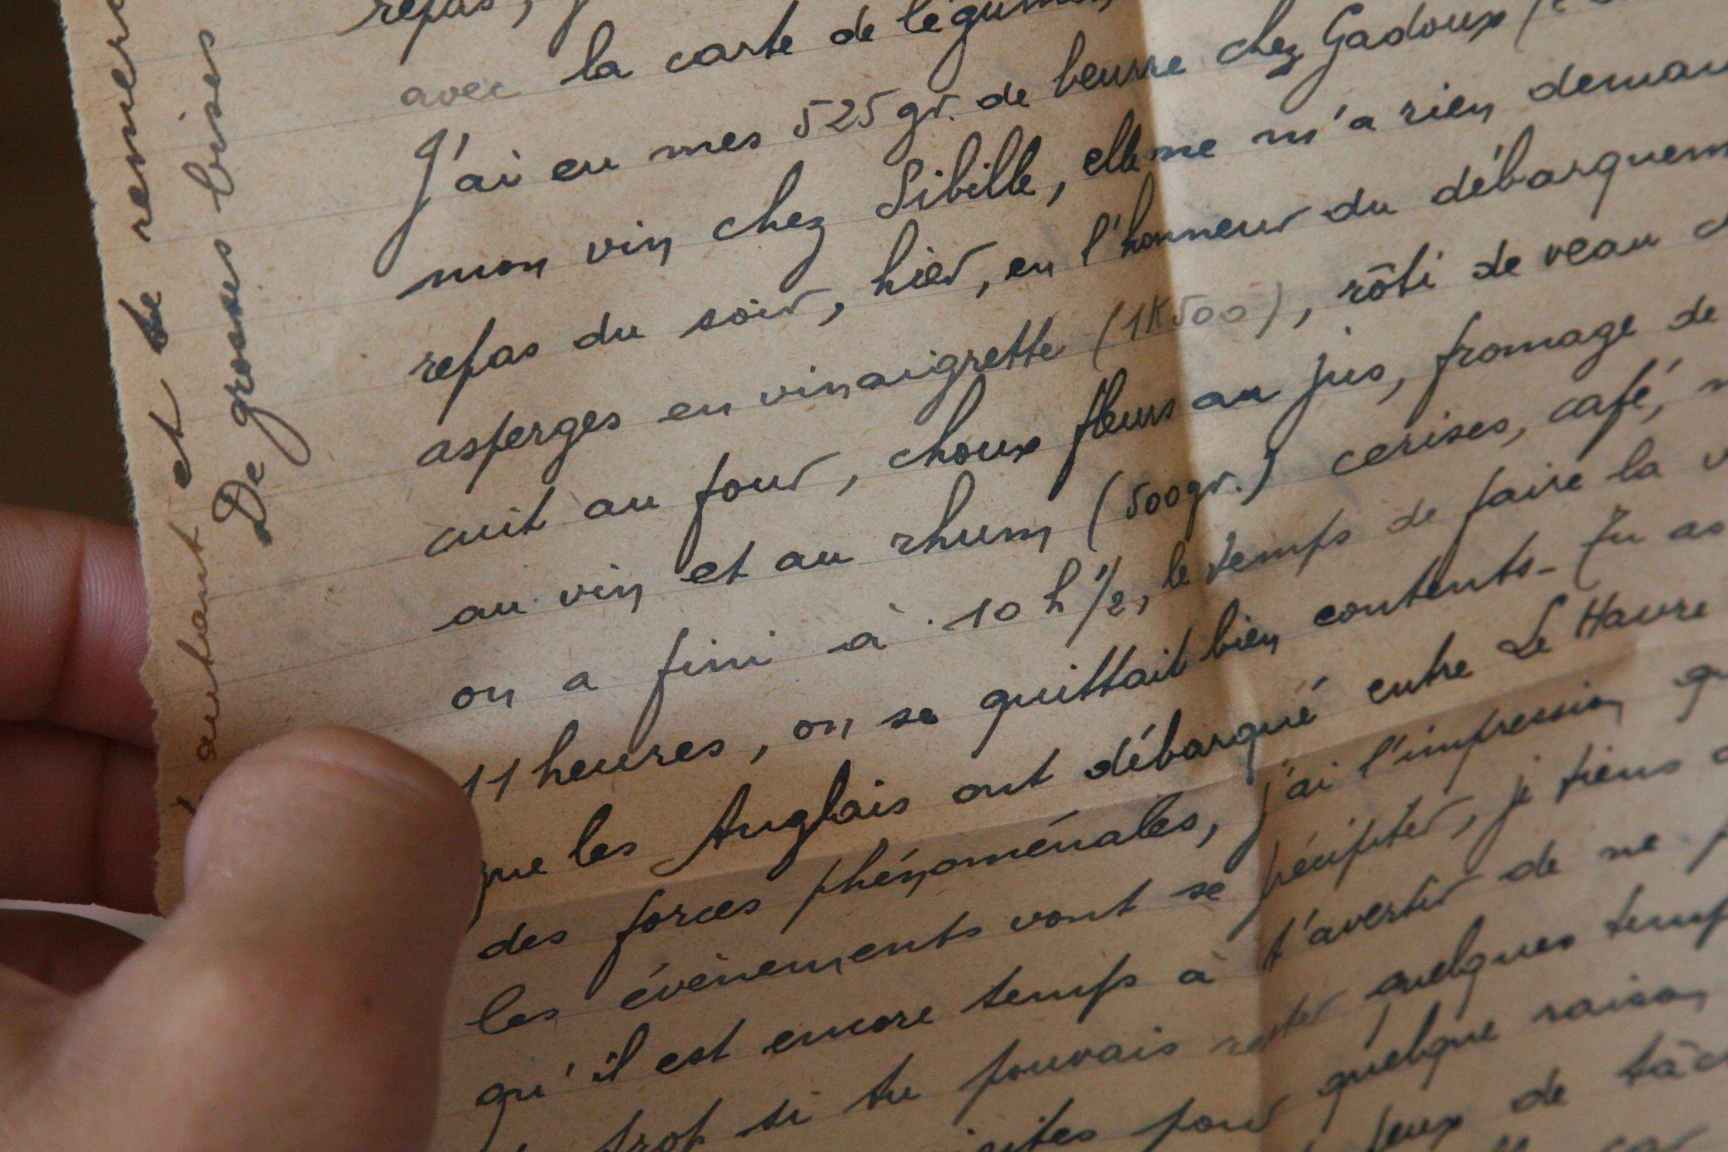 repas,
avec la carte de légumes,
J'ai eu mes 525 gr. de beurre chez Gadoux (
mon vin chez Sibille, elle ne m'a rien deman
repas du soir, hier, en l'honneur du débarquem
asperges en vinaigrette (1K500), rôti de veau
cuit au four, choux fleurs au jus, fromage de
au vin et au rhum (500gr.) cerises, café,
on a fini à 10 h 1/2, le temps de faire la v
11 heures, on se quittait bien contents - Tu as
que les Anglais ont débarqué entre Le Havre
des forces phénoménales, j'ai l'impression qu
les évènements vont se précipiter, je tiens
qu'il est encore temps à t'avertir de ne p
trop si tu pouvais rester quelques temp
pour quelque raison
de tâc
autant et te remerc
De grosses bises